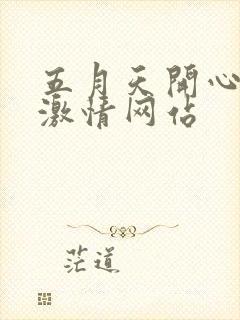 五月天開心
激情网站
茫道